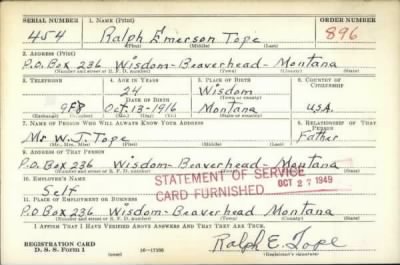 SERIAL NUMBER 1. NAME (Print) ORDER NUMBER
454 Ralph Emerson Tope 896
(First) (Middle) (Last)
2. ADDRESS (Print)
P.O. Box 236 Wisdom-Beaverhead-Montana
(Number and street or R. F. D. number) (Town) (County) (State)
3. TELEPHONE 4. AGE IN YEARS 5. PLACE OF BIRTH 6. COUNTRY OF CITIZENSHIP
24 Wisdom
DATE OF BIRTH (Town or county)
9F8 Oct-13-1916 Montana U.S.A.
(Exchange) (Number) (Mo.) (Day) (Yr.) (State or country)
7. NAME OF PERSON WHO WILL ALWAYS KNOW YOUR ADDRESS 8. RELATIONSHIP OF THAT PERSON
Mr W. J. Tope Father
(Mr., Mrs., Miss) (First) (Middle) (Last)
9. ADDRESS OF THAT PERSON
P.O. Box 236 Wisdom-Beaverhead-Montana
(Number and street or R. F. D. number) (Town) (County) (State)
10. EMPLOYER'S NAME
Self
STATEMENT OF SERVICE
CARD FURNISHED OCT 27 1949
11. PLACE OF EMPLOYMENT OR BUSINESS
P.O Box 236 Wisdom-Beaverhead Montana
(Number and street or R. F. D. number) (Town) (County) (State)
I AFFIRM THAT I HAVE VERIFIED ABOVE ANSWERS AND THAT THEY ARE TRUE.
REGISTRATION CARD
D. S. S. Form 1
Ralph E. Tope
(Registrant's signature)